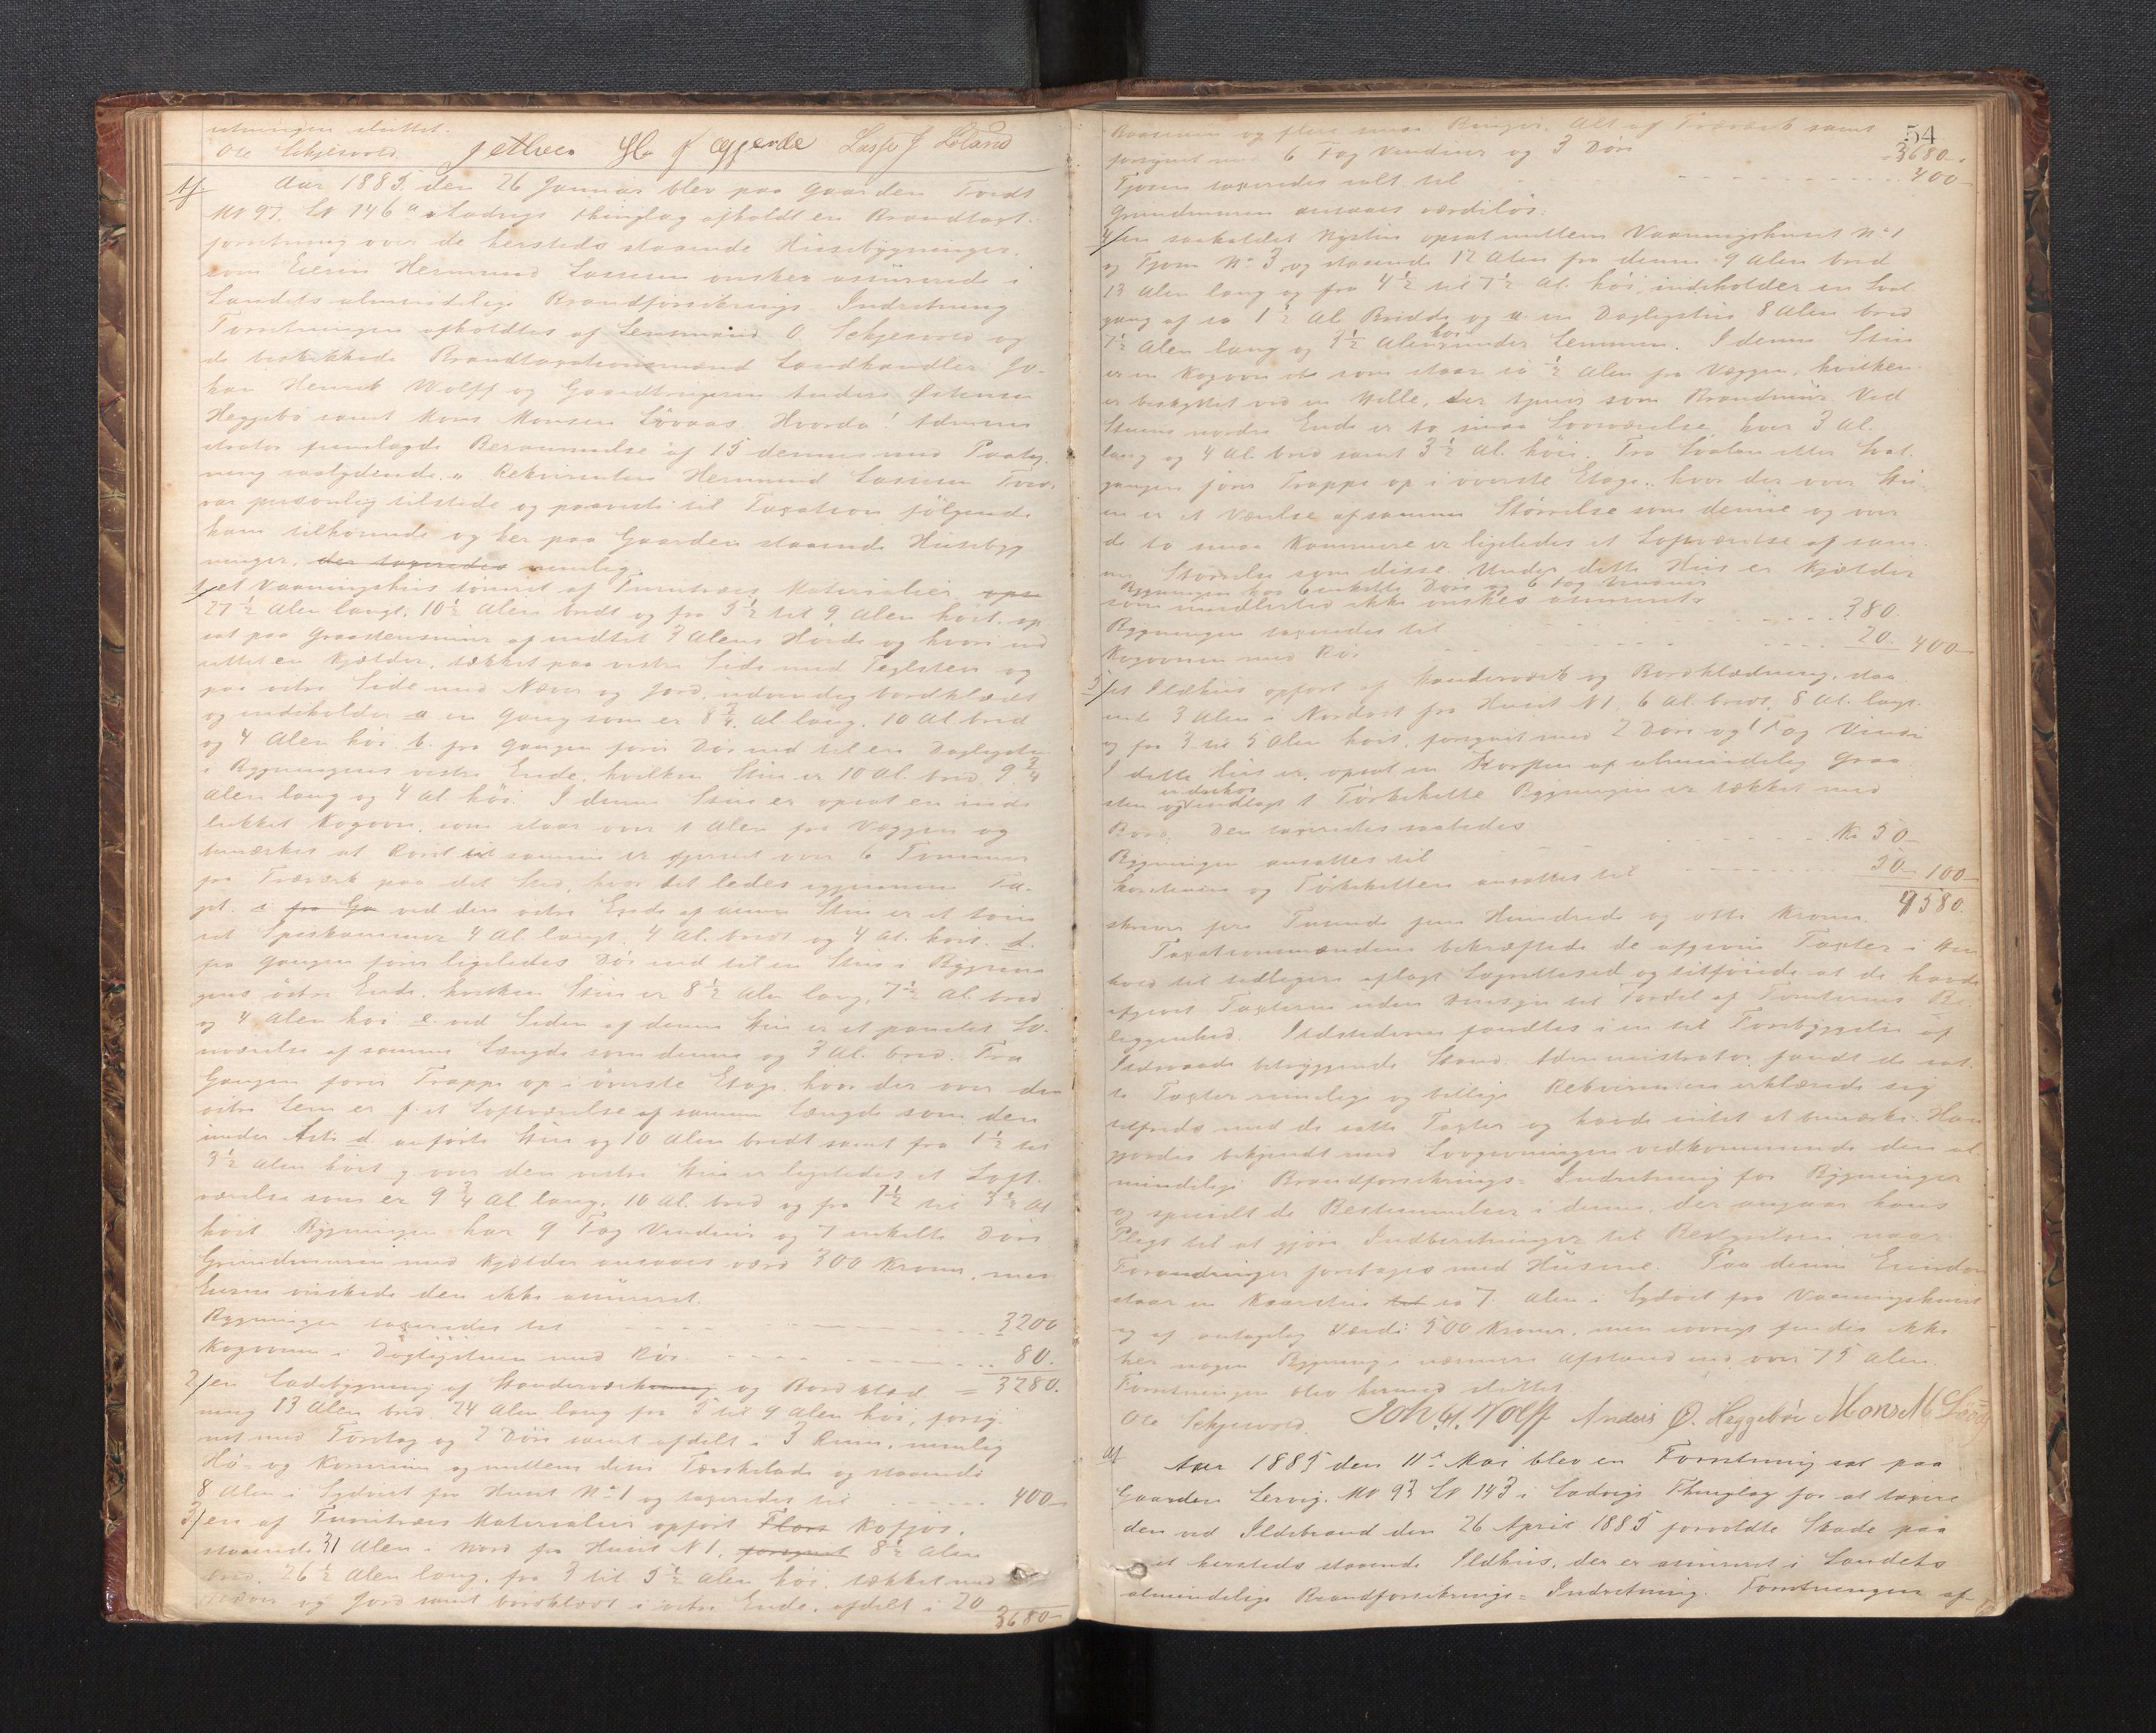 retningen sluttet.
Ole Schjesvold. J Lasse J Loland
Af. Aar 1885, den 26 Januar blev paa Gaarden Tvedt
MN 97, LN 146a i Ladvigs Thinglag afholdt en Brandtaxt-
forretning over de hersteds staaende Husebygninger,
som Eieren Hermund Lassesen ønsker assurerede i
Landets almindelige Brandforsikrings Indretning
Forretningen afholdtes af Lensmand O. Schjesvold og
de beskikkede Brandtaxationsmænd Landhandler Jo-
han Henrik Wolff og Gaardbrugerne Anders Østensen
Heggebø samt Mons Monsen Løvaas. Hvorda! Admini-
strator fremlagde Berammelse af 15 dennes med Paateg-
ning saalydende. " Rekvirenten Hermund Lassesen
var personlig tilstede og paaviste til Taxation følgende
ham tilhørende og her paa Gaarden staaende Husebyg-
ninger, der taxeredes nemlig:
1/ et Vaaningshus tømret af Furutræes Materialier, ops
27½ Alen langt, 10½ Alen bredt og fra 5½ til 9 Alen høit, op-
sat paa Graastensmur af indtil 3 Alens Høide og hvori ind-
rettet en Kjælder, tækket paa vestre Side med Teglsten og
paa østre Side med Næver og Jord, udvendig bordklædt
og indeholder a en Gang som er 8¾ Al. lang, 10 Al. bred
og 4 Alen høi. b. fra Gangen fører Dør ind til en Dagligstue
i Bygningens vestre Ende, hvilken Stue er 10 Al. bred, 9¾
Alen lang og 4 Al. høi. I denne Stue er opsat en inde-
lukket Kogovn, som staar over 1 Alen fra Væggen og
bemærkes at Røret til samme er fjernet over 6 Tommer
fra Træværk paa det Sted, hvor det ledes igjennem Ta-
get. c fra Ga ved den østre Ende af denne Stue er et tøm-
ret Speskammer 4 Al. langt, 4 Al. bredt og 4 Al. høit. d.
fra Gangen fører ligeledes Dør ind til en Stue i Bygnin-
gens østre Ende, hvilken Stue er 8½ Alen lang, 7½ Al. bred
og 4 Alen høi e. ved Siden af denne Stue er et panelet So-
veværelse af samme Længde som denne og 3 Al. bred. Fra
Gangen fører Trappe op i øverste Etage, hvor der over den
østre Lem er f. et Loftværelse af samme Længde som den
under Litr. d. anførte Stue og 10 Alen bredt samt fra 1½ til
3½ Alen høit g. over den vestre Stue er ligeledes et Loft-
værelse som er 9¾ Al. lang, 10 Al. bred og fra 1½ til 3½ Al.
høit Bygningen har 9 Fag Vinduer og 7 enkelte Døre
Grundmuren med Kjælder ansaaes værd 300 Kroner, men
Eieren ønskede den ikke assureret.
Bygningen taxeredes til 3200
Kogovnen i Dagligstuen med Rør 80.
2/ en Ladebygning af Standerværk og Bordklæd- = 3280.
ning 13 Alen bred, 24 Alen lang fra 5 til 9 Alen høi, forsy-
net med Torvtag og 2 Døre samt afdelt i 3 Rum, nemlig
Hø- og Kornrum og mellem dem Tærskelade og staaende
8 Alen i Sydvest fra Huset No 1 og taxeredes til 400-
3/ en af Furutræes Materialier opført Kofjøs,
staaende 31 Alen i Nord fra Huset N 1, forsynet 8½ Alen
bred, 26½ Alen lang, fra 3 til 5½ Alen høi, tækket med
Næver og Jord samt bordklædt i østre Ende, afdelt i 20
3680-
54
Baasrum og flere smaa Binger, Alt af Træværk samt
forsynet med 6 Fag Vinduer og 3 Døre 3680-
Fjøsen taxeredes alt til 400-
Grundmuren ansaaes værdiløs.
4/ en saakaldet Nystue opsat mellem Vaaningshuset No 1
og Fjøsen No 3, og staaende 12 Alen fra denne 9 Alen bred
13 Alen lang og fra 4½ til 7½ Al. høi, indeholder en Sval-
gang af ca 1½ Al. Bredde og a en Dagligstue 8 Alen bred
7½ Alen lang og 3½ Alen høi under Lemmen. I denne Stue
er en Kogovn som staar ca ½ Alen fra Væggen, hvilken
er beskyttet ved en Helle, der tjener som Brandmur. Ved
Stuens nordre Ende er to smaa Soveværelse, hver 3 Al.
lang og 4 Al. bred samt 3½ Al. høie. Fra Svalen eller Sval-
gangen fører Trappe op i øverste Etage, hvor der over Stu-
en er et Værelse af samme Størrelse som denne og over
de to smaa Kammere er ligeledes et Loftværelse af sam-
me Størrelse som disse. Under dette Hus er Kjælder
Bygningen har 6 enkelte Døre og 6 Fag Vinduer
som imidlertid ikke ønskes assureret.
Bygningen taxeredes til 380.
Kogovnen med Rør 20. 400-
5/ et Ildhus opført af Standerværk og Bordklædning, staa-
ende 3 Alen i Nordvest fra Huset N 1, 6 Al. bredt, 8 Al. langt
og fra 3 til 5 Alen høit, forsynet med 2 Døre og 1 Fag Vindu
I dette Hus er opsat en Skorsten af almindelig Graa-
sten og indlagt 1 Tørkehelle Bygningen er tækket med
Bord. Den taxeredes saaledes
Bygningen ansattes til Kr 50-
Skorstenen og Tørkehellen ansattes til 50- 100-
skriver fire Tusinde fem Hundrede og otti Kroner. 4580.
Taxationsmændene bekræftede de afgivne Taxter i Hen-
hold til tidligere aflagt Lagrettesed og tilføiede at de havde
afgivet Taxterne uden Hensyn til Fordel af Tomternes Be-
liggenhed. Ildstederne fandtes i en til Forebyggelse af
Ildsvaade betryggende Stand. Administrator fandt de sat-
te Taxter rimelige og billige Rekvirenten erklærede sig
tilfreds med de satte Taxter og havde intet at bemærke. Han
gjordes bekjendt med Lovgivningen vedkommende den al-
mindelige Brandforsikrings- Indretning for Bygninger
og specielt de Bestemmelser i denne, der angaar hans
Pligt til at gjøre Indberetninger til Bestyrelsen naar
Forandringer foretages med Husene. Paa denne Eiendom
staar en Kvarstue ca 7 Alen i Sydvest fra Vaaningshuset
og af antagelig Værdi 500 Kroner, men iøvrigt findes ikke
her nogen Bygning i nærmere Afstand end over 75 Alen.
Forretningen blev hermed sluttet
Ole Schjesvold. Joh. H. Wolff Anders Ø. Heggebøe Mons M Løvaas
Af Aar 1885 den 11te Mai blev en Forretning sat paa
Gaarden Lervig, MN 93 LN 143 i Ladvigs Thinglag for at taxere
den ved Ildebrand den 26 April 1885 forvoldte Skade paa
et hersteds staaende Ildhus, der er assureret i Landets
almindelige Brandforsikrings- Indretning. Forretningen af-